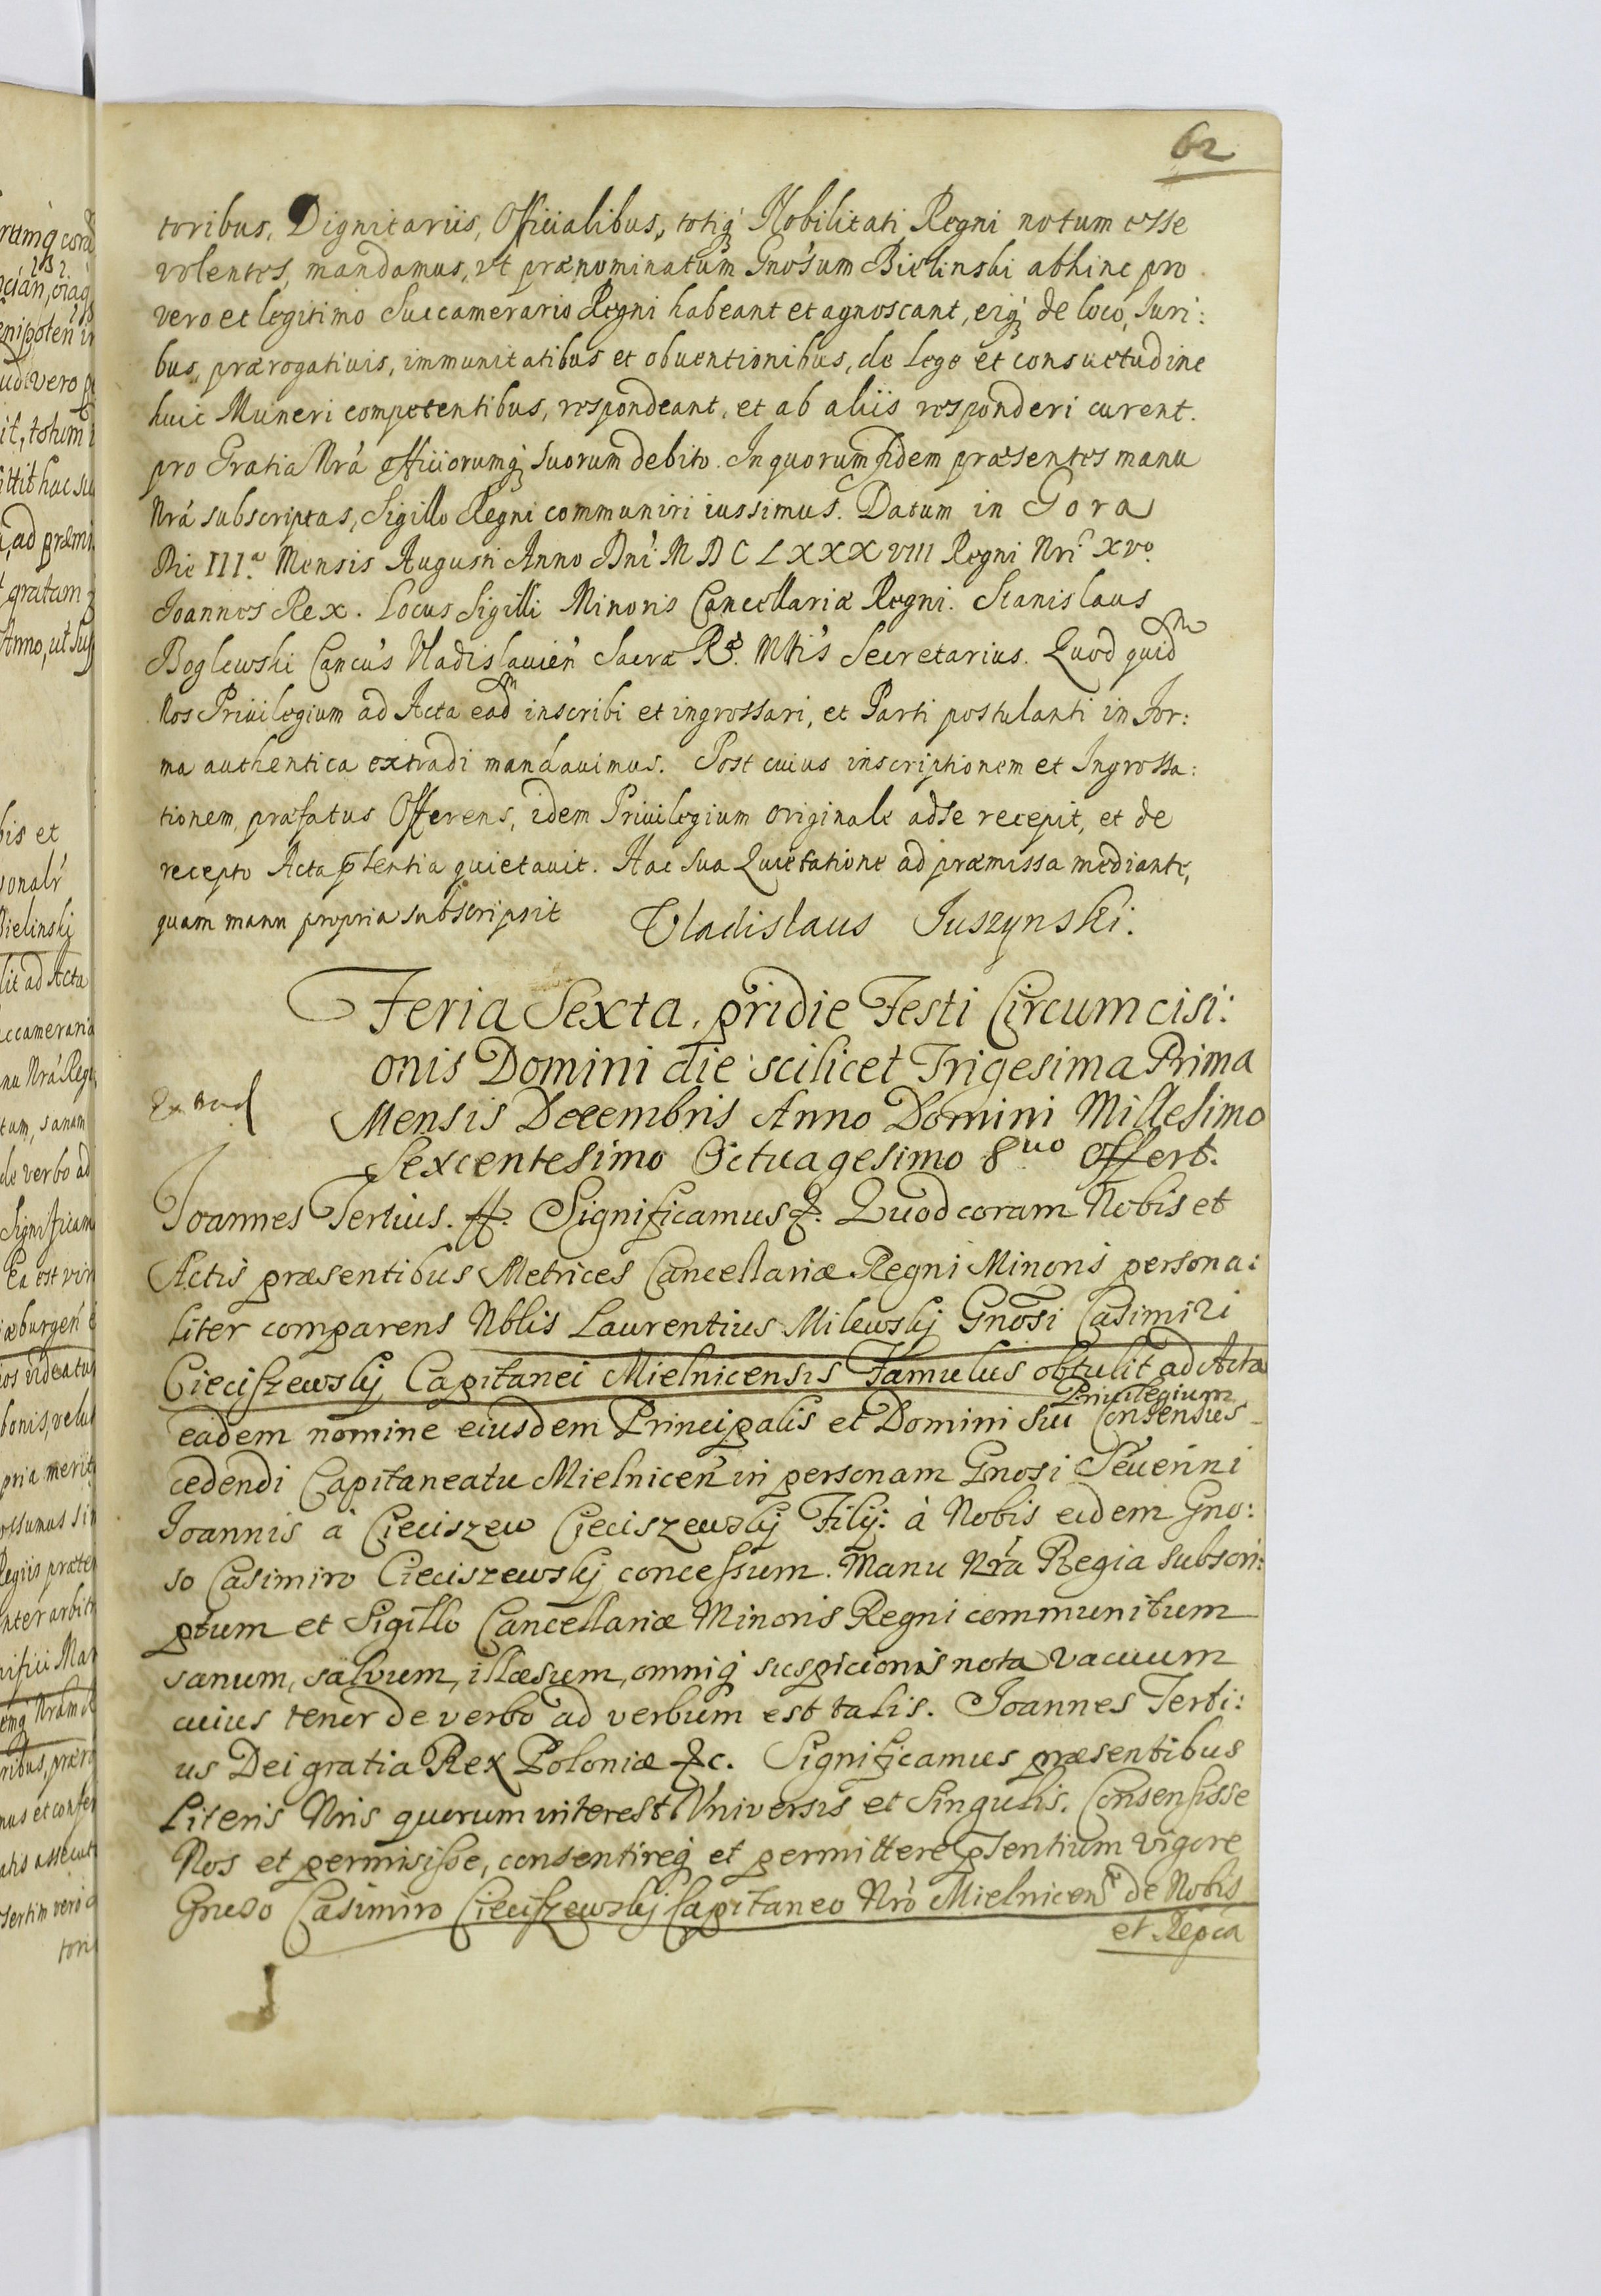 62
toribus, Dignitariis, Officialibus, totiq; Nobilitati Regni notum esse
volentes, mandamus, vt prænominatum Gnosum Bielinski abhinc pro
vero et legitimo Succamerario Regni habeant et agnoscant, eiq; de loco, Iuri:
bus, prærogatiuis, immunitatibus et obuentionibus, de lege et consuetudine
huic Muneri competentibus, respondeant, et ab aliis responderi curent.
pro Gratia Nrá officiorumq; suorum debito. In quorum fidem præsentes manu
Nrá subscriptas, Sigillo Regni communiri iussimus. Datum in Gora
Die III.a Mensis Augusti Anno Dni M D C L X X X VIII Regni Nri XVo.
Joannes Rex. Locus Sigilli Minoris Cancellariæ Regni. Stanislaus
Boglewski Cancus Vladislauien Sacræ Ræ. Mttis Secretarius. Quod quidm
Nos Priuilegium ad Acta eadm inscribi et ingrossari, et Parti postulanti in For:
ma authentica extradi mandauimus. Post cuius inscriptionem et Ingrossa:
tionem, præfatus Offerens, idem Priuilegium originale ad se recepit, et de
recepto Acta pñtentia quietauit. Hac sua Quietatione ad præmissa mediante,
quam manu propria subscripsit Vladislaus Juszynski.
Feria Sexta, pridie Festi Circumcisi:
onis Domini die scilicet Trigesima Prima
Mensis Decembris Anno Domini Millesimo
Sexcentesimo Octuagesimo 8uo Offert.
Extrad
Joannes Tertius. ff. Significamus &. Quod coram Nobis et
Actis præsentibus Metrices Cancellariæ Regni Minoris persona:
liter comparens Nblis Laurentius Milewskj Gnosi Casimiri
Cieciszewskj Capitanei Mielnicensis Famulus obtulit ad Acta
Priuilegium
eadem nomine eiusdem Principalis et Domini sui Consensus
cedendi Capitaneatu Mielnicen in personam Gnosi Seuerini
Joannis à Cieciszew Cieciszewskj Filij: à Nobis eidem Gno:
so Casimiro Cieciszewskj concessum. Manu Nrá Regia subscri:
ptum et Sigillo Cancellariæ Minoris Regni communitum
sanum, salvum, illæsum, omniq; suspicionis nota vacuum
cuius tenor de verbo ad verbum est talis. Joannes Terti:
us Dei gratia Rex Poloniæ &c. Significamus præsentibus
Literis Nris quorum interest Vniversis et Singulis. Consensisse
Nos et permisisse, consentireq; et permittere pñtentium vigore
Gnoso Casimiro Cieciszewskj Capitaneo Nró Mielnicen de Nobis
et Repca